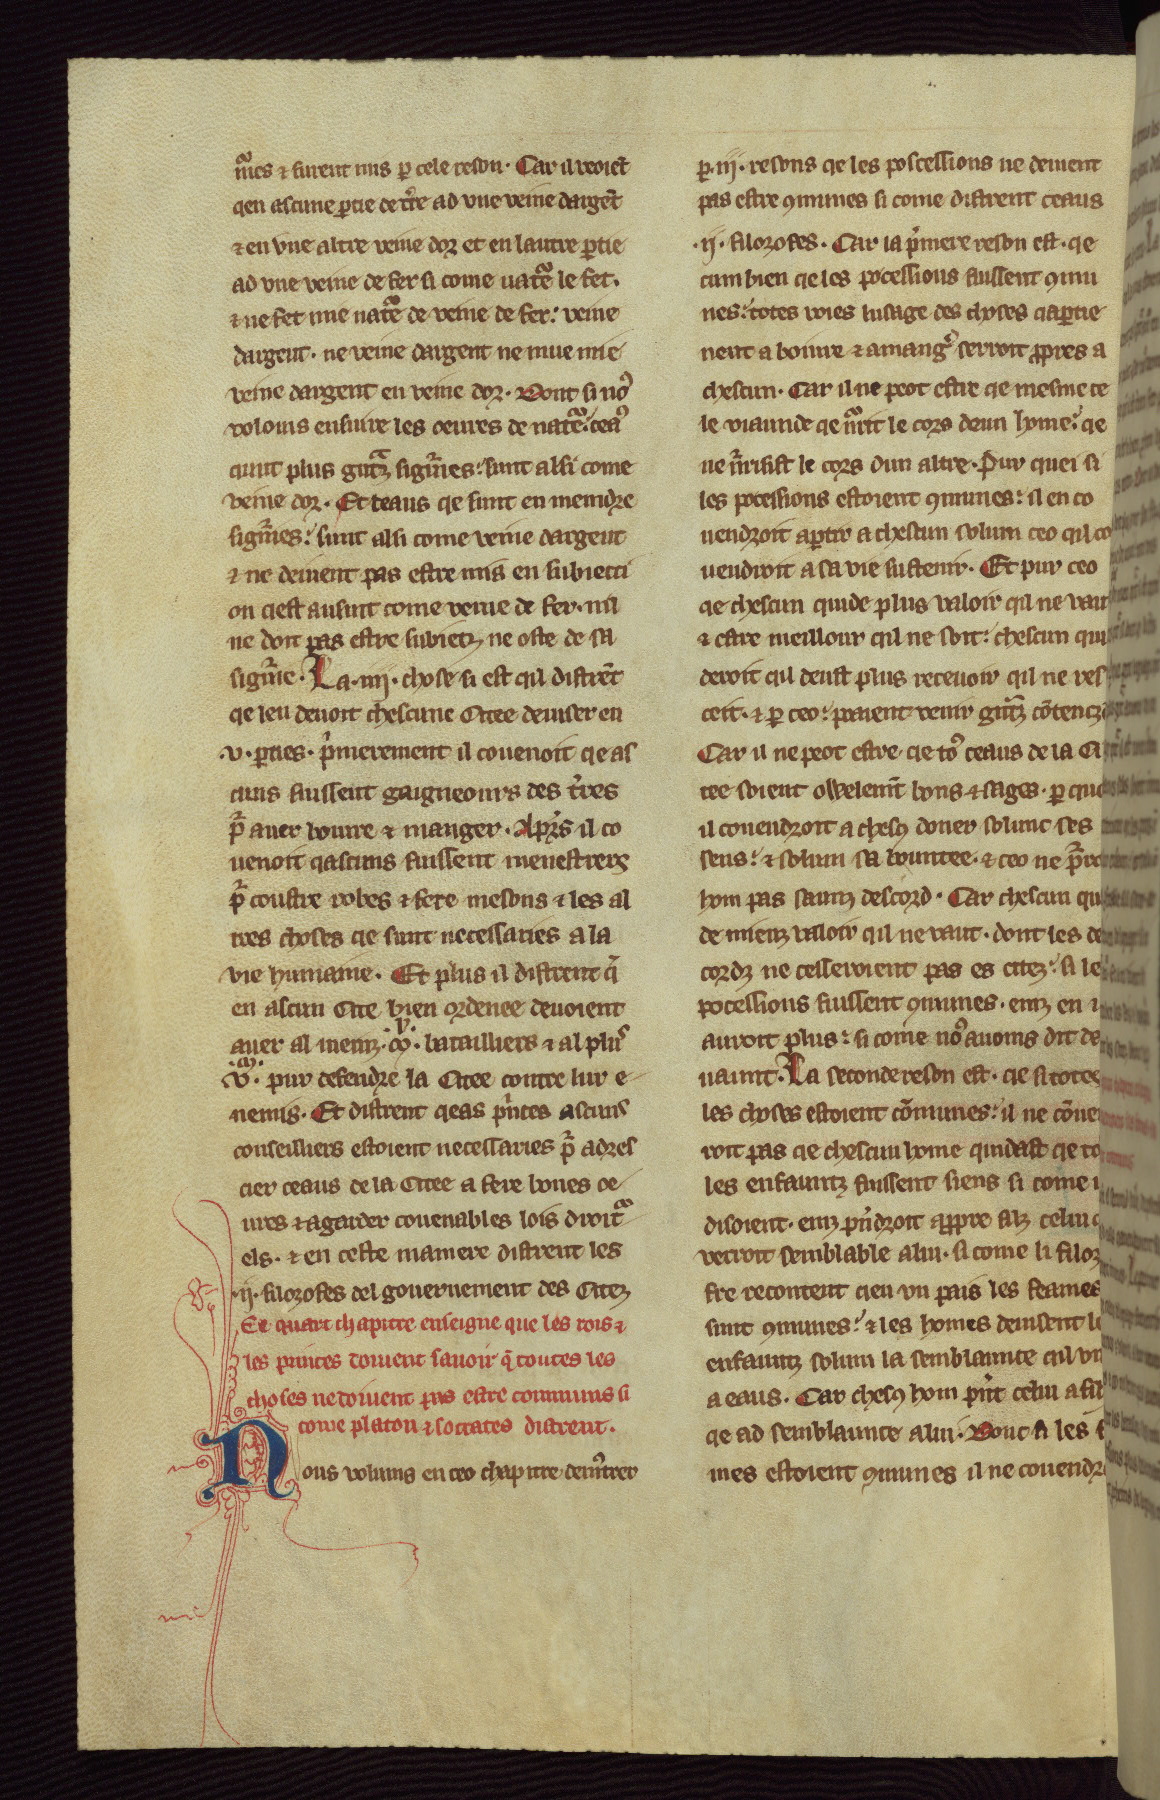 mͣes ⁊ furent mis ꝑ cele reson. Car il veoiēt
qen ascune ꝑtie de tͥre ad vne veine dargēt
⁊ en vne altre veine dor et en lautre ꝑtie
ad vne veine de fer si come natͣe le fet.
⁊ ne fet mie natͣe de veine de fer: veine
dargent. ne veine dargent ne mue mie
veine dargent en veine dor. Dont si noꝰ
voloms ensuire les oeures de natͣe: ceaꝰ
qunt plus gͣntz sigͥnes: sunt alsi come
veine dor. Et ceaus qe sunt en meindre
sigͥnes: sunt alsi come veine dargent
⁊ ne deiuent pas estre mis en subiecti
on ciest ausint come veine de fer. nul
ne doit pas estre subietz ne oste de sa
sigͥnie. La .iiij. chose si est qil distrēt
qe len deuoit chescune Citee deuiser en
.v. ꝑties. pͥmerement il couenoit qe as
cuns fuissent gaigneours des tͥres
pͬ auer boiure ⁊ manger. Apͥs il co
uenoit qascuns fuissent menestrers
pͬ coustre robes ⁊ fere mesons ⁊ les al
tres choses qe sunt necessaries a la
vie humaine. Et plus il distrent q̄
en ascun Cite bien ordenee deuoient
auer al meinz .v. batailliers ⁊ al plꝰ
.v. pur defendre la Citee contre lur e-
nemis. Et distrent qeas pͥnces ascuns
conseilliers estoient necessaries pͬ adres
cier ceaus de la Citee a fere bones oe
ures ⁊ agarder couenables lois droitͣ
els. ⁊ en ceste maniere distrent les
.ij. filozofes del gouernement des Citez
Le quart chapitre enseigne que les rois ⁊
les princes doiuent sauoir q̄ toutes les
choses ne doiuent pas estre communs si
come platon ⁊ socrates distrent.
Nous volums en ceo chapitre demͬtrer
ꝑ .iij. resons qe les poscessions ne deiuent
pas estre ꝯmunes si come distrent ceaus
.ij. filozofes. Car la pͥmere reson est. qe
cumbien qe les pocessions fuissent ꝯmu
nes: totes voies lusage des choses qaꝑtie
nent a boiure ⁊ a mangͬ serroit ꝓpres a
chescun. Car il ne peot estre qe mesme ce
le viaunde qe nͬrit le cors deun home: qe
ne nͬrisist le cors dun altre. Pur quei si
les pocessions estoient ꝯmunes: il en co
uendroit aꝑtir a chescun solum ceo qil co
uendroit a sa vie sustenir. Et pur ceo
qe chescun quide plus valoir qil ne vaut
⁊ estre meillour qil ne soit: chescun qui
deroit qil deust plus receuoir qil ne res
ceit. ⁊ ꝑ ceo: poient venir gͣntz cōtencz
Car il ne peot estre qe toꝰ ceaus de la Ci
tee soient owelemͭ bons ⁊ sages. ꝑ quei
il couendroit a chesꝯ doner solunc ses
sens: ⁊ solum sa bountee. ⁊ ceo ne pͬro
hom pas saunz descord. Car chescun qui
de mieuz valoir qil ne vaut. dont les de
cordz ne cesseroient pas es citez: si le
pocessions fuissent ꝯmunes. einz en i
auroit plus: si come noꝰ auoms dit de
uaunt. La seconde reson est. qe si totes
les choses estoient cōmunes: il ne cōuen
roit pas qe chescun home quidast qe to
les enfauntz fuissent siens si come i
disoient. einz pͥndroit a ꝓpre filz celui q
verroit semblable a lui. si come li filoz
fre recontent qen vn pais les feames
sunt ꝯmunes: ⁊ les homes deuisent l
enfauntz solum la semblaunce qil vn
a eaus. Car chesꝯ hom pͥnt celui a fil
qe ad semblaunce a lui. Dont si les f
mes estoient ꝯmunes il ne couendr